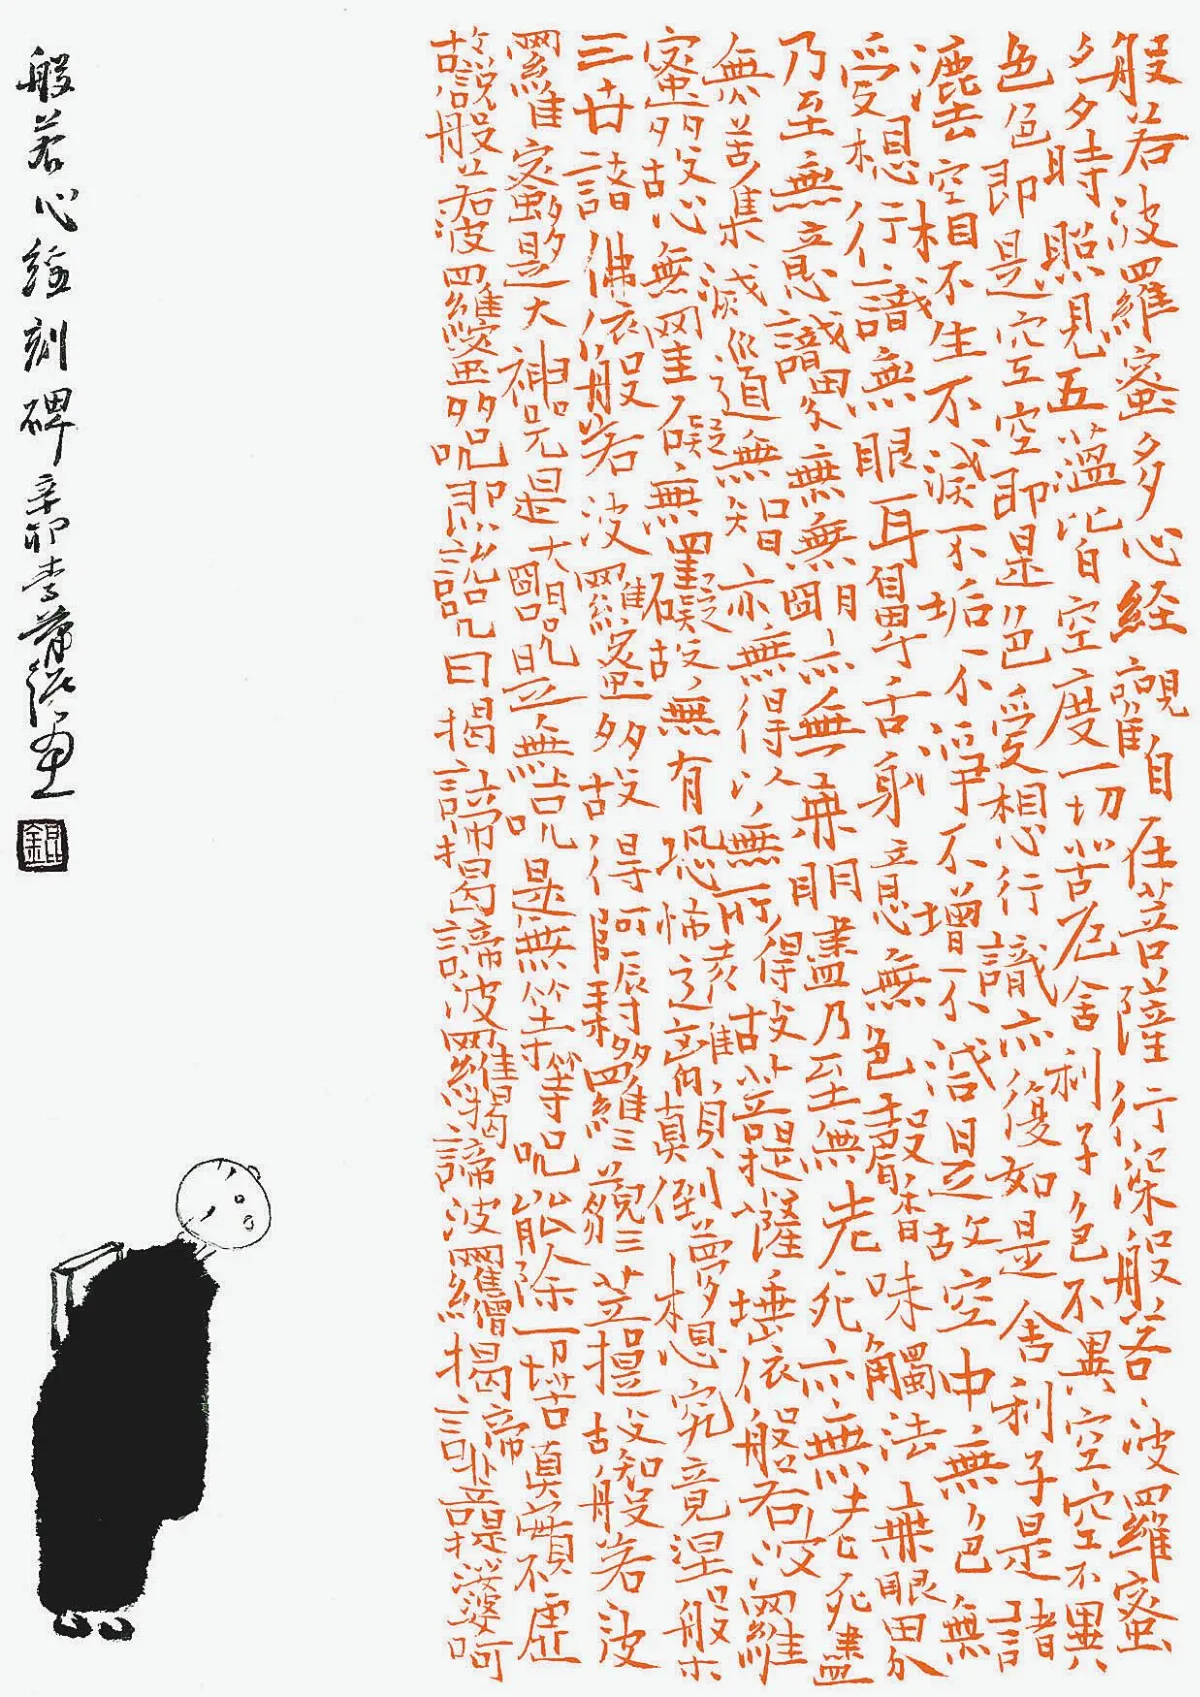 般若波羅蜜多心経觀自在菩薩行深般若波羅蜜
多時照見五蘊皆空度一切苦厄舍利子色不異空空不異
色色即是空空即是色受想行識亦復如是舍利子是諸
灋空相不生不滅不垢不淨不增不減是故空中無色無
受想行識無眼耳鼻舌身意無色聲香味觸法無眼界
乃至無意識界無無明亦無無明盡乃至無老死亦無老死盡
無苦集滅道無智亦無得以無所得故菩提薩埵依般若波羅
蜜多故心無罣礙無罣礙故無有恐怖遠離顛倒夢想究竟涅槃
三世諸佛依般若波羅蜜多故得阿耨多羅三藐三菩提故知般若波
羅蜜多是大神咒是大明咒是無上咒是無等等咒能除一切苦真實不虛
故說般若波羅蜜多咒即說咒曰揭諦揭諦波羅揭諦波羅僧揭諦菩提薩婆訶
般若心經刻碑 辛卯李蕭錕畫
錕